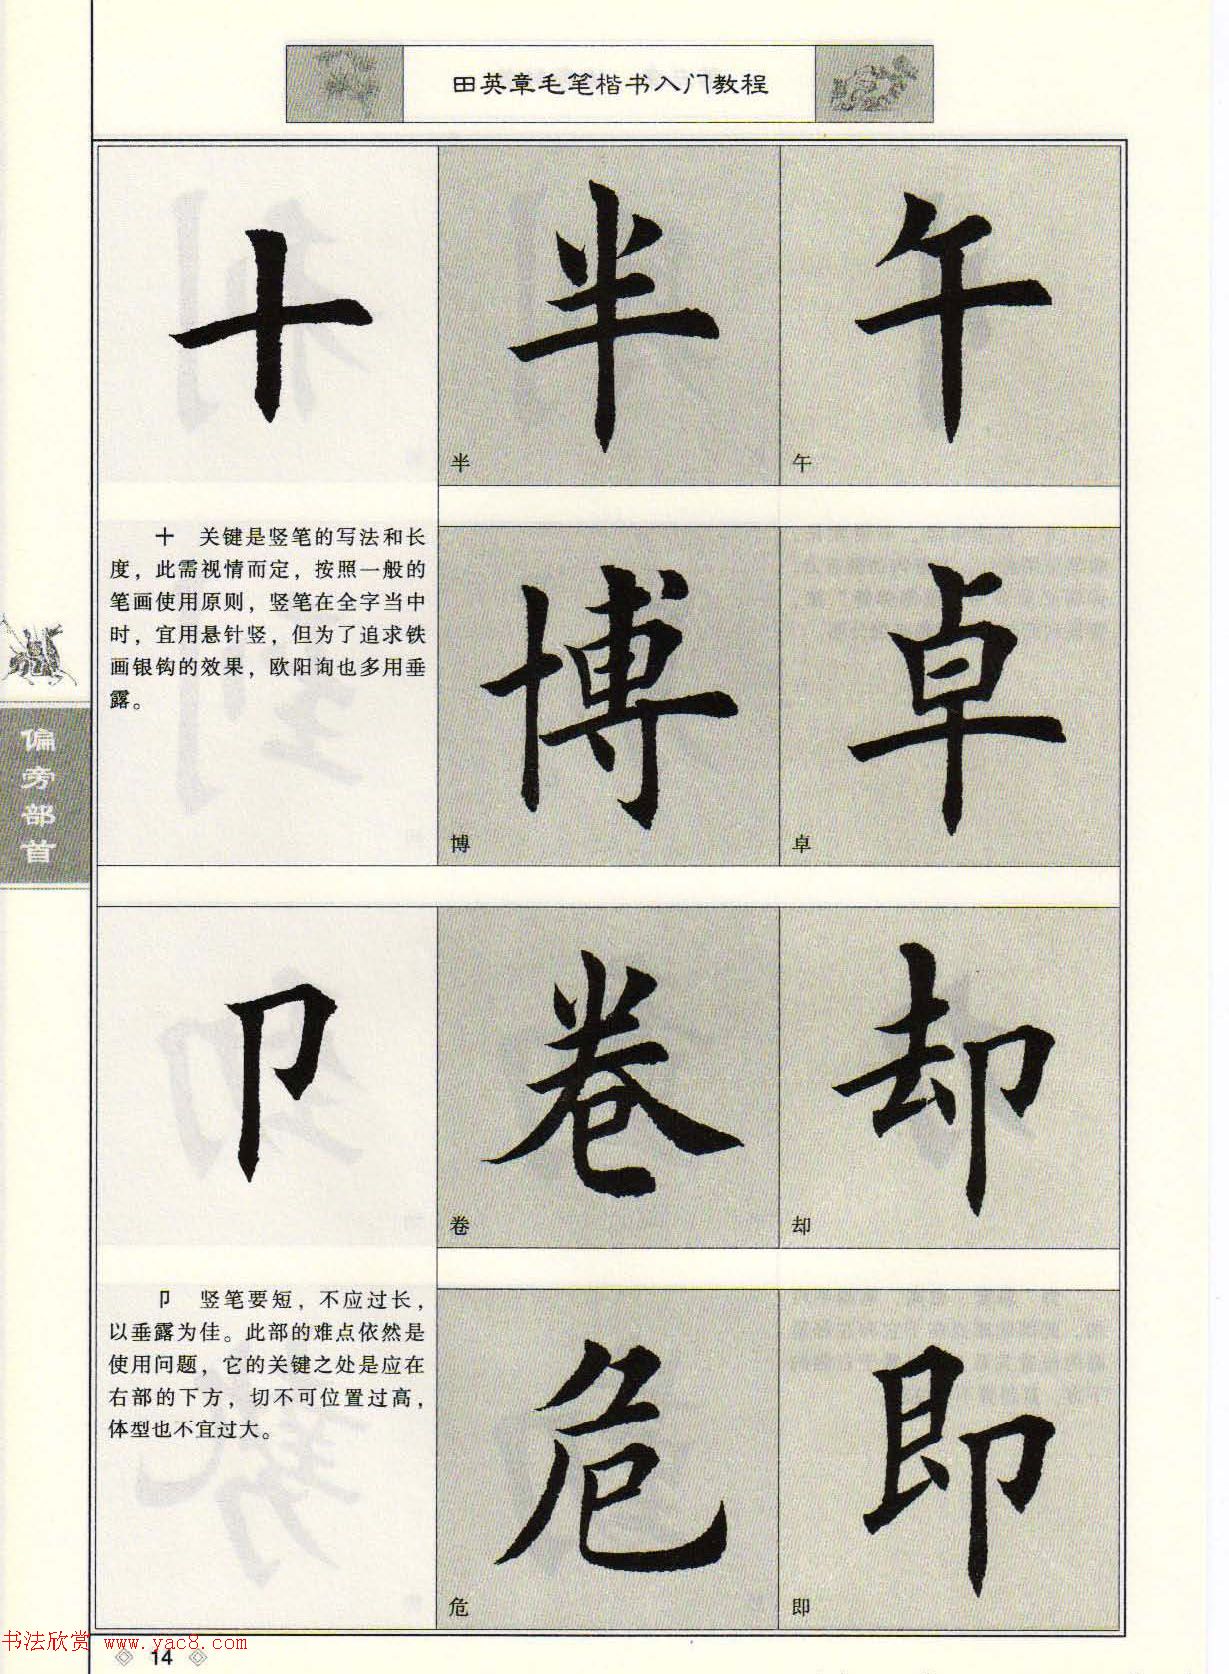 田英章毛笔楷书入门教程
十
半
午
半
午
十 关键是竖笔的写法和长
度，此需视情而定，按照一般的
笔画使用原则，竖笔在全字当中
时，宜用悬针竖，但为了追求铁
画银钩的效果，欧阳询也多用垂
露。
博
卓
博
卓
偏旁部首
卩
卷
却
卷
却
卩 竖笔要短，不应过长，
以垂露为佳。此部的难点依然是
使用问题，它的关键之处是应在
右部的下方，切不可位置过高，
体型也不宜过大。
危
即
危
即
书法欣赏 www.yac8.com
14